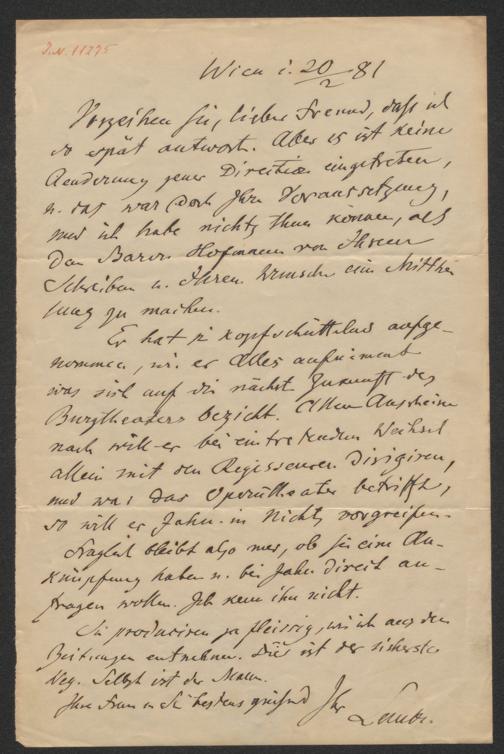 J.N. 11275
Wien i. 20/2 81
Verzeihen Sie, lieber Freund, daß ich
so spät antworte. Aber es ist keine
Aenderung jener Direction eingetreten,
u. das war doch Ihre Voraussetzung,
und ich habe nichts thun können, als
dem Baron Hofmann von Ihrem
Schreiben u. Ihrem Wunsche eine Mitthei
lung zu machen.
Er hat es kopfschüttelnd aufge-
nommen, wie er Alles aufnimmt
was sich auf die nächste Zukunft des
Burgtheaters bezieht. Allem Anscheine
nach will er bei eintretendem Wechsel
allein mit den Regisseuren dirigiren,
und was das Operntheater betrifft,
so will er Jahn in Nichts vorgreifen.
Fraglich bleibt also nur, ob Sie eine An-
knüpfung haben u. bei Jahn direct an-
fragen wollen. Ich kenne ihn nicht.
Sie produciren ja fleissig, wie ich aus den
Zeitungen entnehme. Dies ist der sicherste
Weg. Selbst ist der Mann.
Ihre Frau u. Sie bestens grüßend Ihr
Laube.